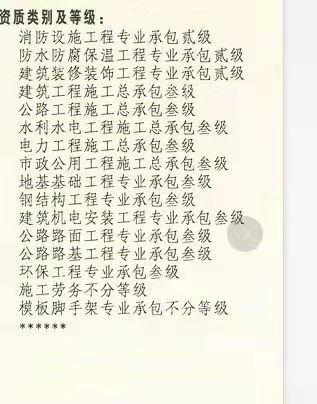 资质类别及等级：
消防设施工程专业承包贰级
防水防腐保温工程专业承包贰级
建筑装修装饰工程专业承包贰级
建筑工程施工总承包叁级
公路工程施工总承包叁级
水利水电工程施工总承包叁级
电力工程施工总承包叁级
市政公用工程施工总承包叁级
地基基础工程专业承包叁级
钢结构工程专业承包叁级
建筑机电安装工程专业承包叁级
公路路面工程专业承包叁级
公路路基工程专业承包叁级
环保工程专业承包叁级
施工劳务不分等级
模板脚手架专业承包不分等级
******